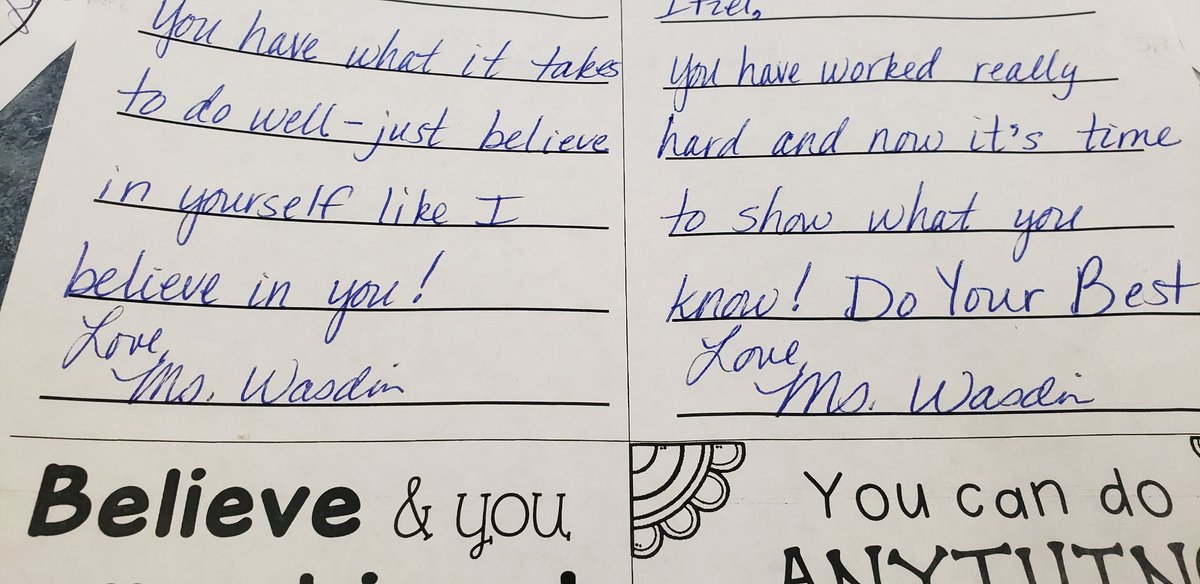 You have what it takes
to do well - just believe
in yourself like I
believe in you!
Love,
Ms. Wasdin
you have worked really
hard and now it's time
to show what you
know! Do Your Best
Love,
Ms. Wasdin
Believe & you
You can do